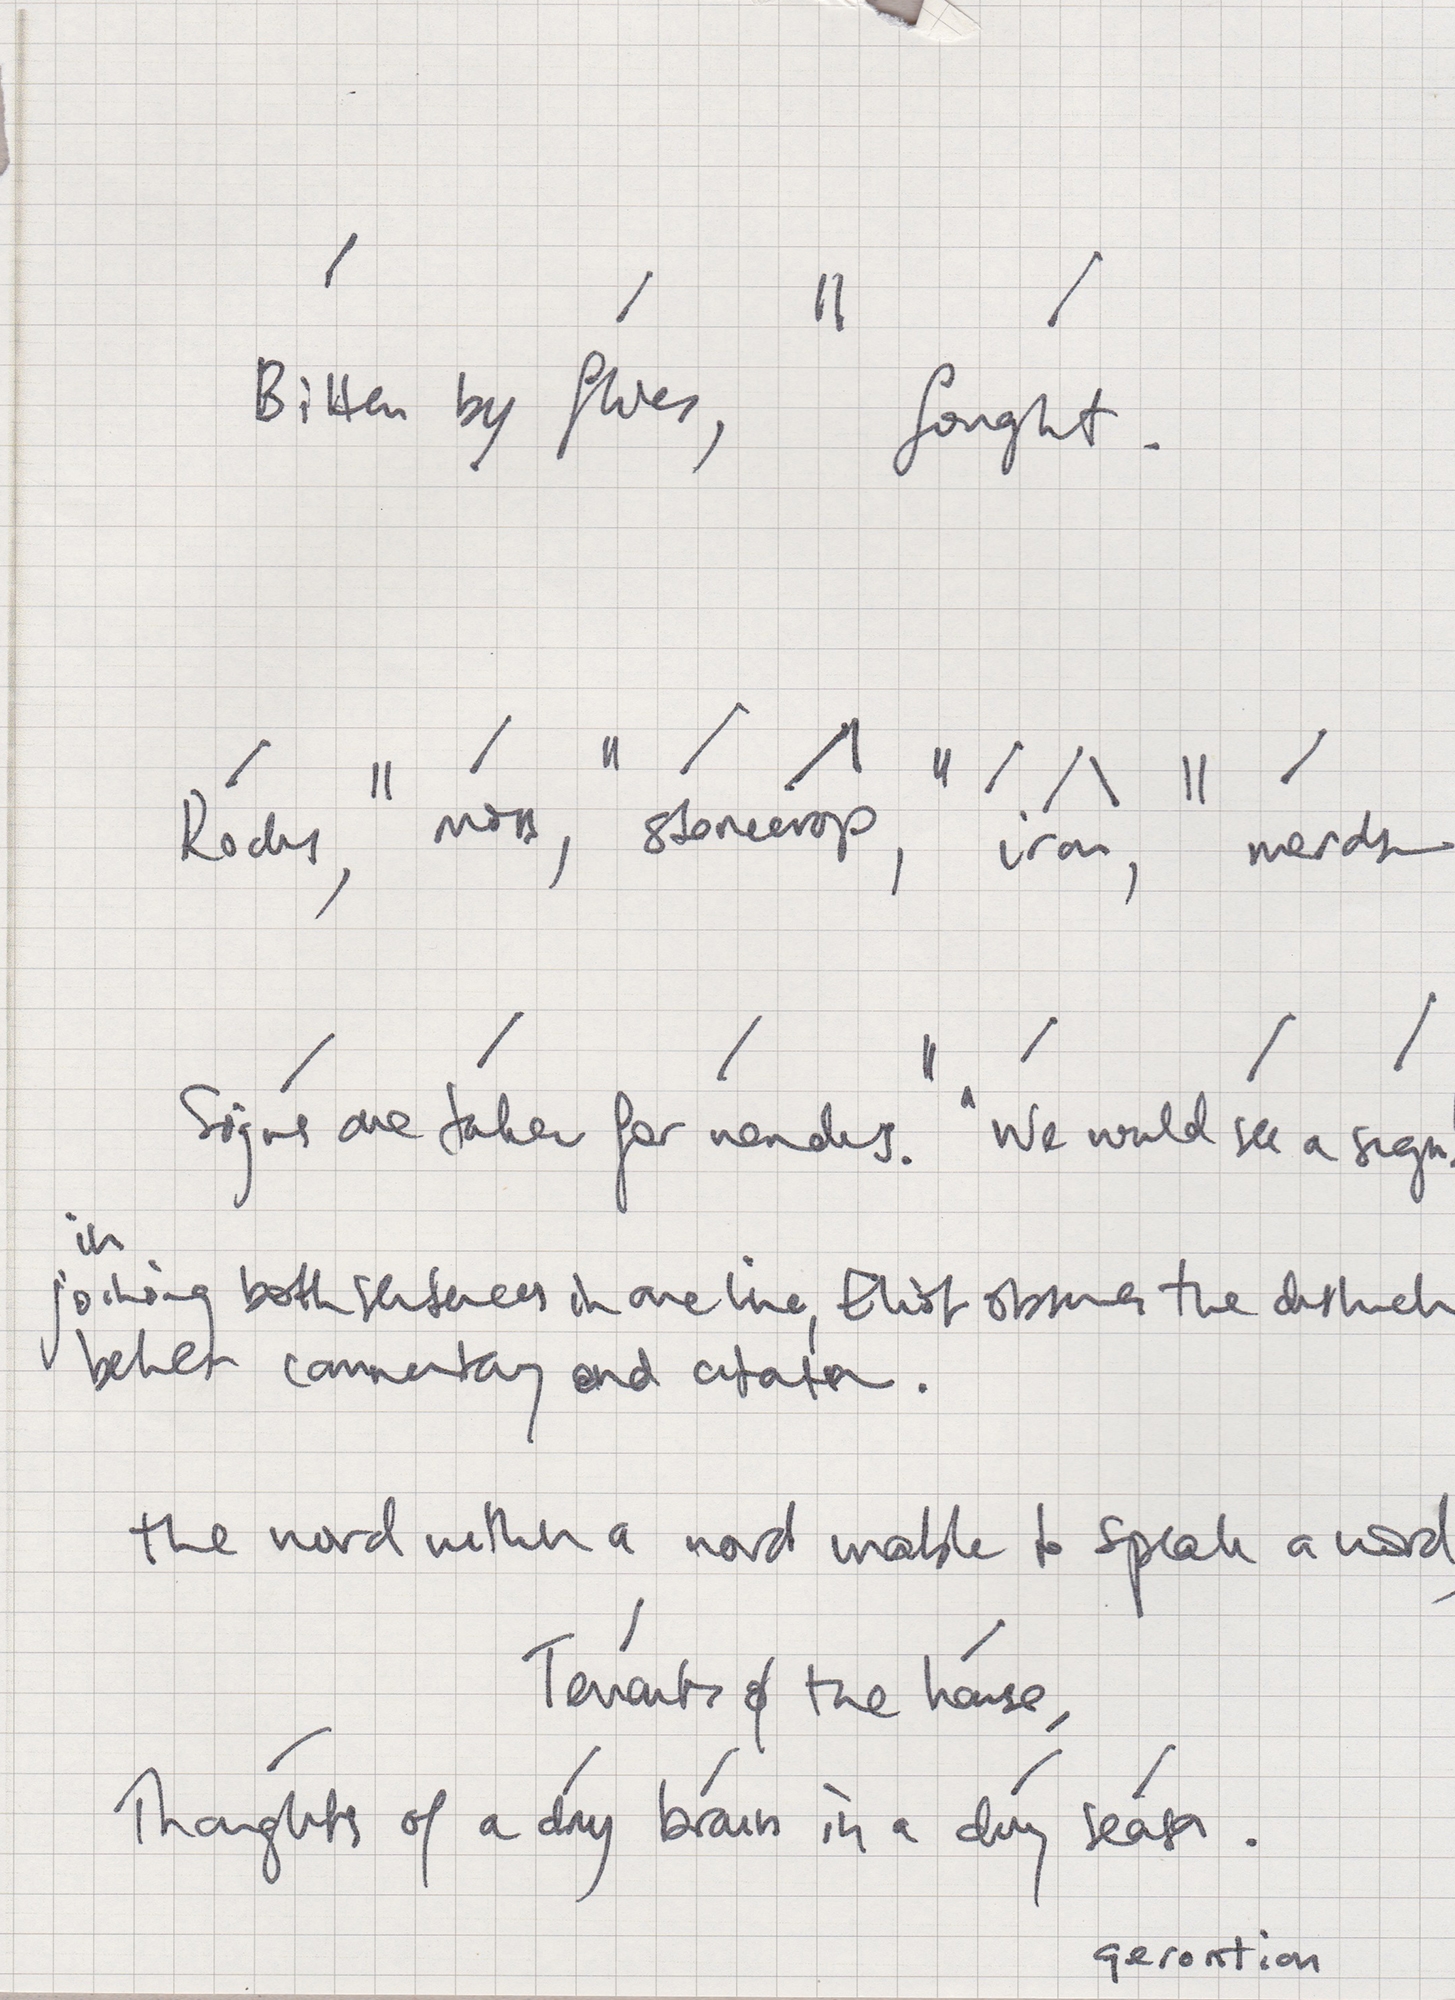 Bitten by flies, || fought.
Rocks, || moss, || stonecrop, || iron, || merds
Signs are taken for wonders. || "We would see a sign!
in
joining both sentences in one line, Eliot obscures the distinction
between commentary and citation.
the word within a word unable to speak a word,
Tenants of the house,
Thoughts of a dry brain in a dry season.
gerontion